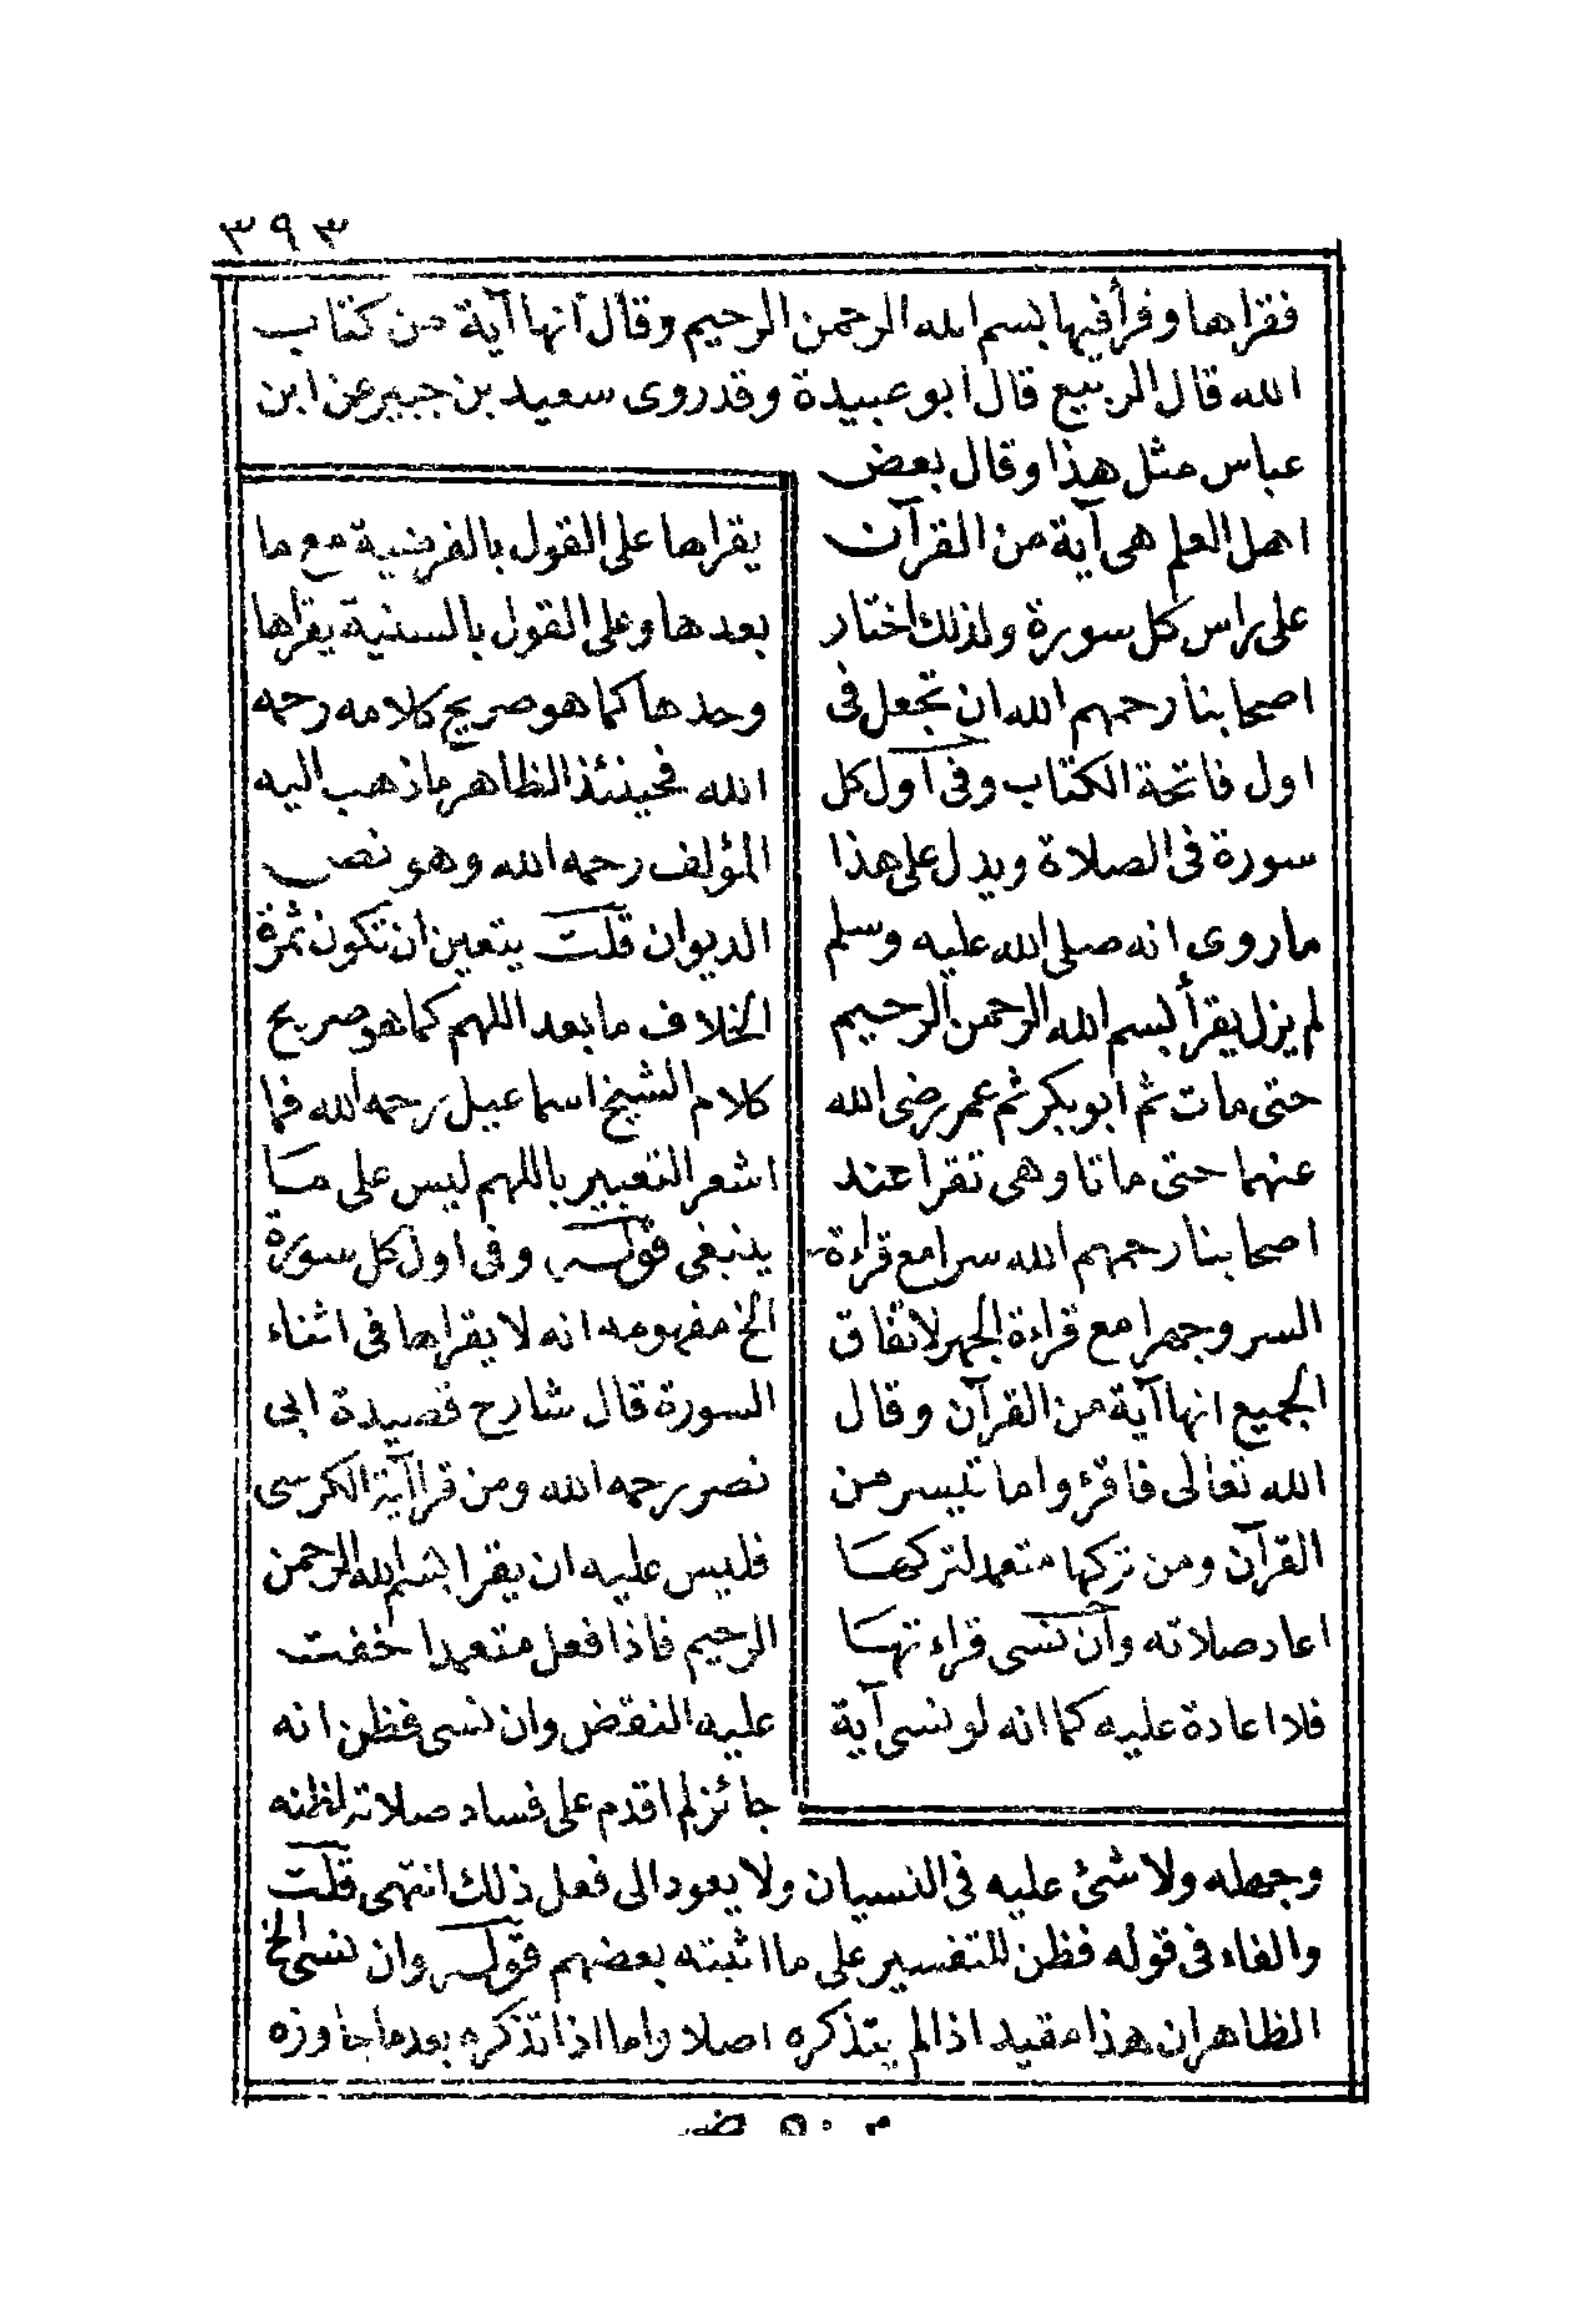 ٣٩٣
فقراها وقرأ فيها بسم الله الرحمن الرحيم وقال انها آية من كتاب
الله قال الربيع قال ابو عبيدة وقد روى سعيد بن جبير عن ابن
عباس مثل هذا وقال بعض
اهل العلم هى آية من القرآن
على راس كل سورة ولذلك اختار
اصحابنا رحمهم الله ان تجعل فى
اول فاتحة الكتاب وفى اول كل
سورة فى الصلاة ويدل على هذا
ما روى انه صلى الله عليه وسلم
لم يزل يقرأ بسم الله الرحمن الرحيم
حتى مات ثم ابو بكر ثم عمر رضى الله
عنهما حتى ماتا وهى تقرا عند
اصحابنا رحمهم الله سرا مع قراءة
السر وجهرا مع قراءة الجهر لاتفاق
الجميع انها آية من القرآن وقال
الله تعالى فاقرؤا ما تيسر من
القرآن ومن تركها متعمد لتركها
اعاد صلاته وان نسى قراءتها
فلا اعادة عليه كما انه لو نسى آية
يقراها على القول بالفرضية مع ما
بعدها وعلى القول بالسنية يقراها
وحدها كما هو صريح كلامه رحمه
الله فحينئذ الظاهر ما ذهب اليه
المؤلف رحمه الله وهو نص
الديوان قلت يتعين ان تكون ثمرة
الخلاف ما بعد اللهم كما هو صريح
كلام الشيخ اسماعيل رحمه الله فما
اشعر التعبير باللهم ليس على ما
ينبغى قوله وفى اول كل سورة
الخ مفهومه انه لا يقراها فى اثناء
السورة قال شارح قصيدة ابى
نصر رحمه الله ومن قرا آية الكرسى
فليس عليه ان يقرا بسم الله الرحمن
الرحيم فاذا فعل متعمدا خفت
عليه النقض وان نسى فظن انه
جائز لم اقدم على فساد صلاته لظنه
وجهله ولا شئ عليه فى النسيان ولا يعود الى فعل ذلك انتهى قلت
والفاء فى قوله فظن للتفسير على ما اثبته بعضهم قوله وان نسى الخ
الظاهر ان هذا مقيد اذا لم يتذكره اصلا واما اذا تذكره بعد ما جاوزه